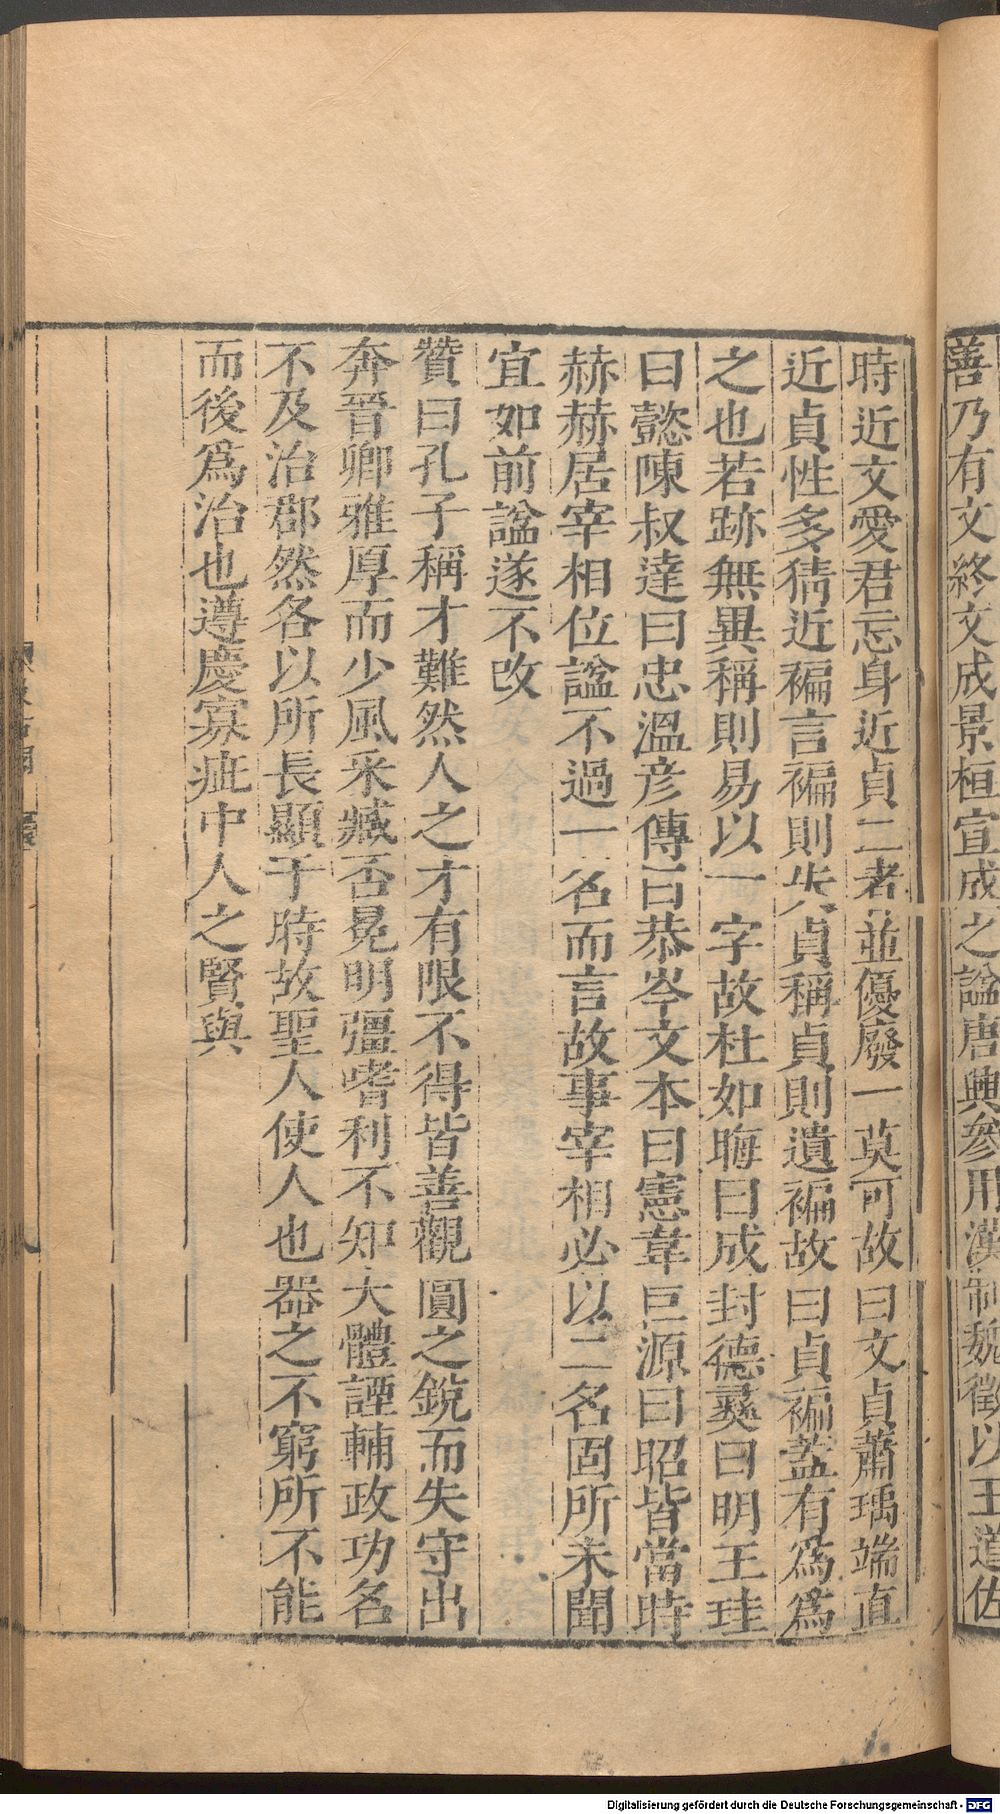 善乃有文終文成景桓宣成之諡唐興參用漢制魏徵以王道佐
時近文愛君忘身近貞二者並優廢一莫可故曰文貞蕭瑀端直
近貞性多猜近褊言褊則失貞稱貞則遺褊故曰貞褊蓋有爲爲
之也若跡無異稱則易以一字故杜如晦曰成封德彝曰明王珪
曰懿陳叔達曰忠溫彦傳曰恭岑文本曰憲韋巨源曰昭皆當時
赫赫居宰相位諡不過一名而言故事宰相必以二名固所未聞
宜如前諡遂不改
贊曰孔子稱才難然人之才有限不得皆善觀圓之銳而失守出
奔晉卿雅厚而少風采臧否冕明彊嗜利不知大體諲輔政功名
不及治郡然各以所長顯于時故聖人使人也器之不窮所不能
而後爲治也遵慶寡疵中人之賢與
Digitalisierung gefördert durch die Deutsche Forschungsgemeinschaft - DFG